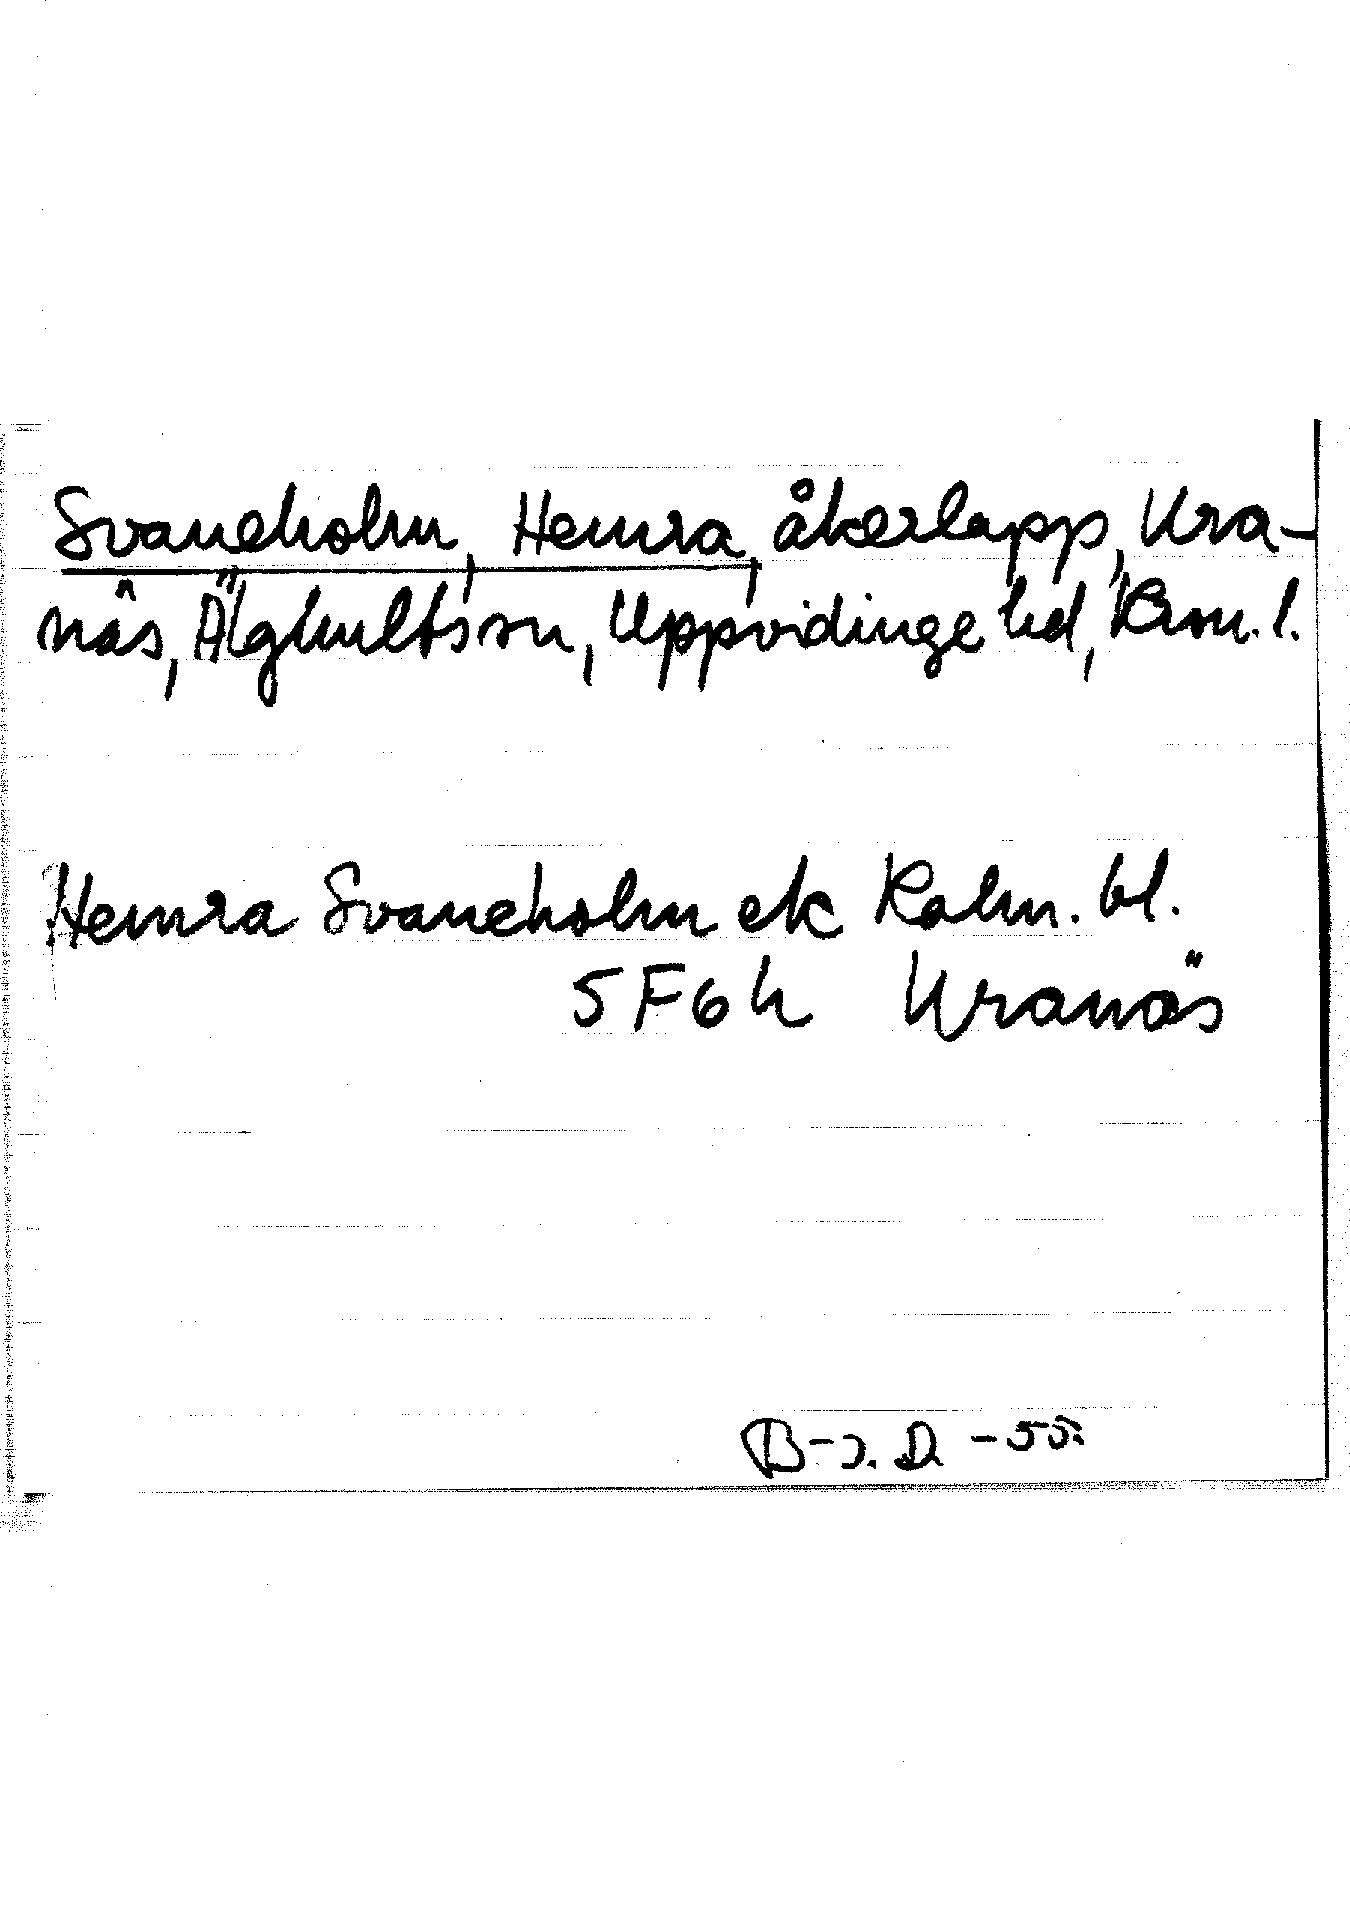 Svaneholm, Hemra, åkerlapp, Kra-
näs, Älghults sn, Uppvidinge hd, Kron. l.
Hemra Svaneholm ek Kalm. bl.
5 F 6 h Kranäs
B-J. D. -55.